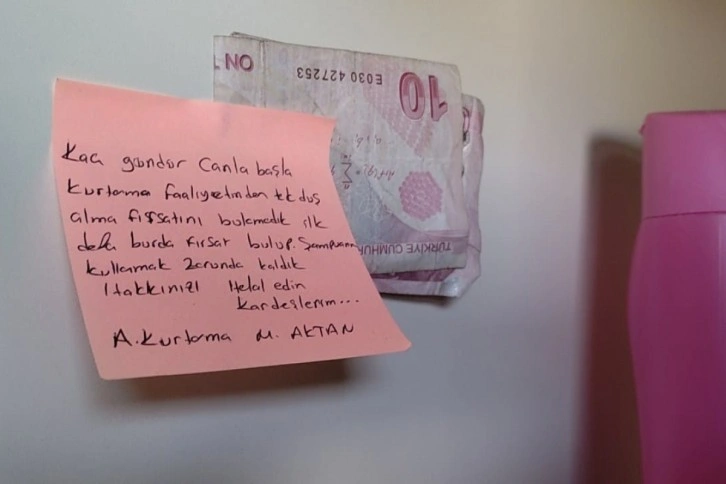 Kaç gündür Canla başla
kurtarma faaliyetinden tek duş
alma fırsatını bulamadık ilk
defa burda fırsat bulup. Şampuanı
kullanmak zorunda kaldık
Hakkınızı Helal edin
kardeşlerim...
A. Kurtarma M. AKTAN
ON
E030 427253
10
TÜRKİYE CUMHUR